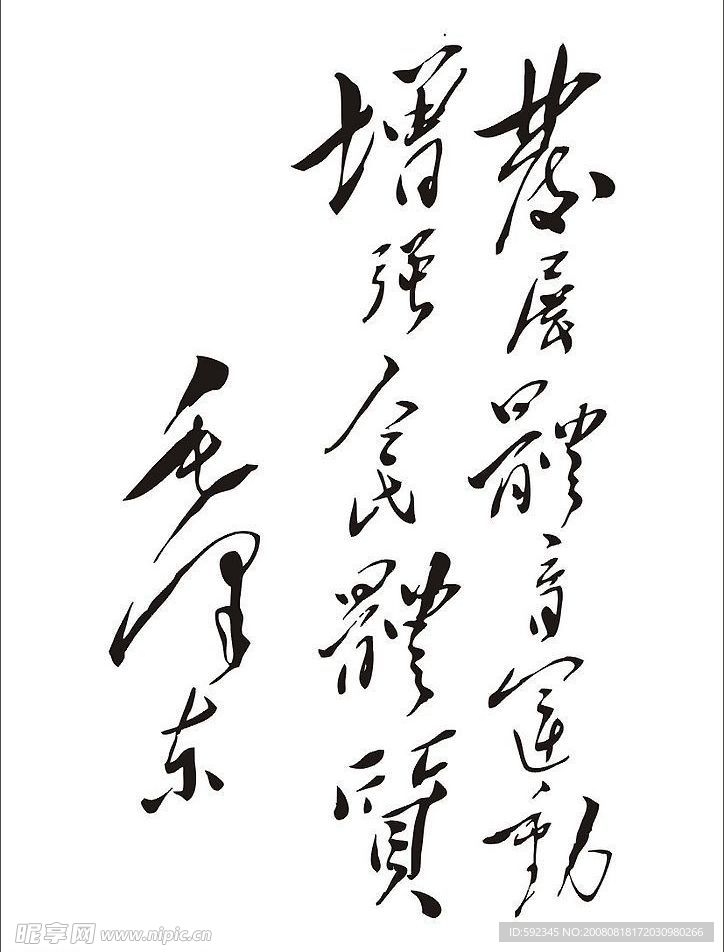 發展體育运動
增强人民體質
毛泽东
昵享网 www.nipic.cn
ID:592345 NO:20080818172030980266